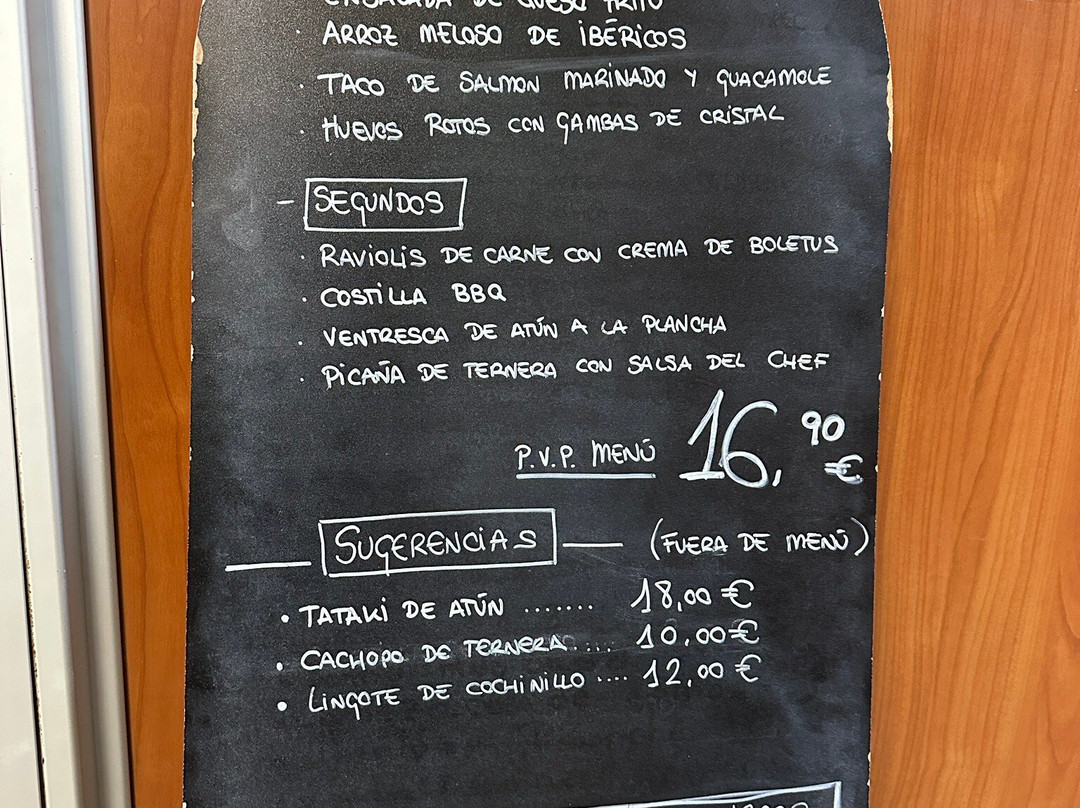 ENSALADA DE QUESO FRITO
· ARROZ MELOSO DE IBÉRICOS
· TACO DE SALMON MARINADO Y GUACAMOLE
· HUEVOS ROTOS CON GAMBAS DE CRISTAL
- SEGUNDOS
· RAVIOLIS DE CARNE CON CREMA DE BOLETUS
· COSTILLA BBQ
· VENTRESCA DE ATÚN A LA PLANCHA
· PICAÑA DE TERNERA CON SALSA DEL CHEF
P.V.P. MENÚ 16,90 €
SUGERENCIAS (FUERA DE MENÚ)
• TATAKI DE ATÚN ....... 18,00 €
• CACHOPO DE TERNERA .... 10,00 €
• LINGOTE DE COCHINILLO .... 12,00 €